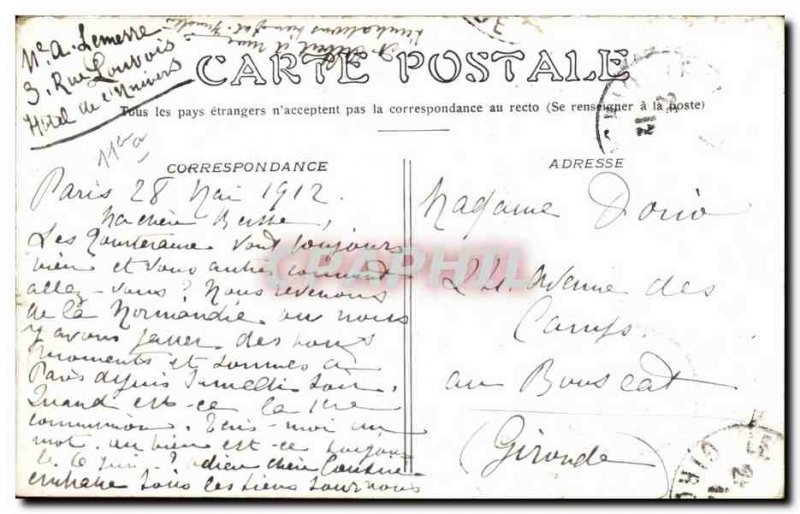 Mr A. Lemerre
3, Rue Louvois
Hôtel de l'Univers
CARTE POSTALE
Tous les pays étrangers n'acceptent pas la correspondance au recto (Se renseigner à la poste)
CORRESPONDANCE
Paris 28 Mai 1912.
Ma chère
Les vont toujours
bien et vous autres comment
allez-vous? Nous revenons
de la Normandie où nous
y avons passer des bons
moments et sommes à
Paris depuis Samedi soir.
Quand est-ce la 1ère
communion. Ecris-moi un
mot. ou bien est-ce toujours
le 6 juin? Adieu chère Cousine
embrasse tous les tiens pour nous
ADRESSE
Madame Dorio
24 Avenue des
Camps.
au Bouscat
(Gironde)